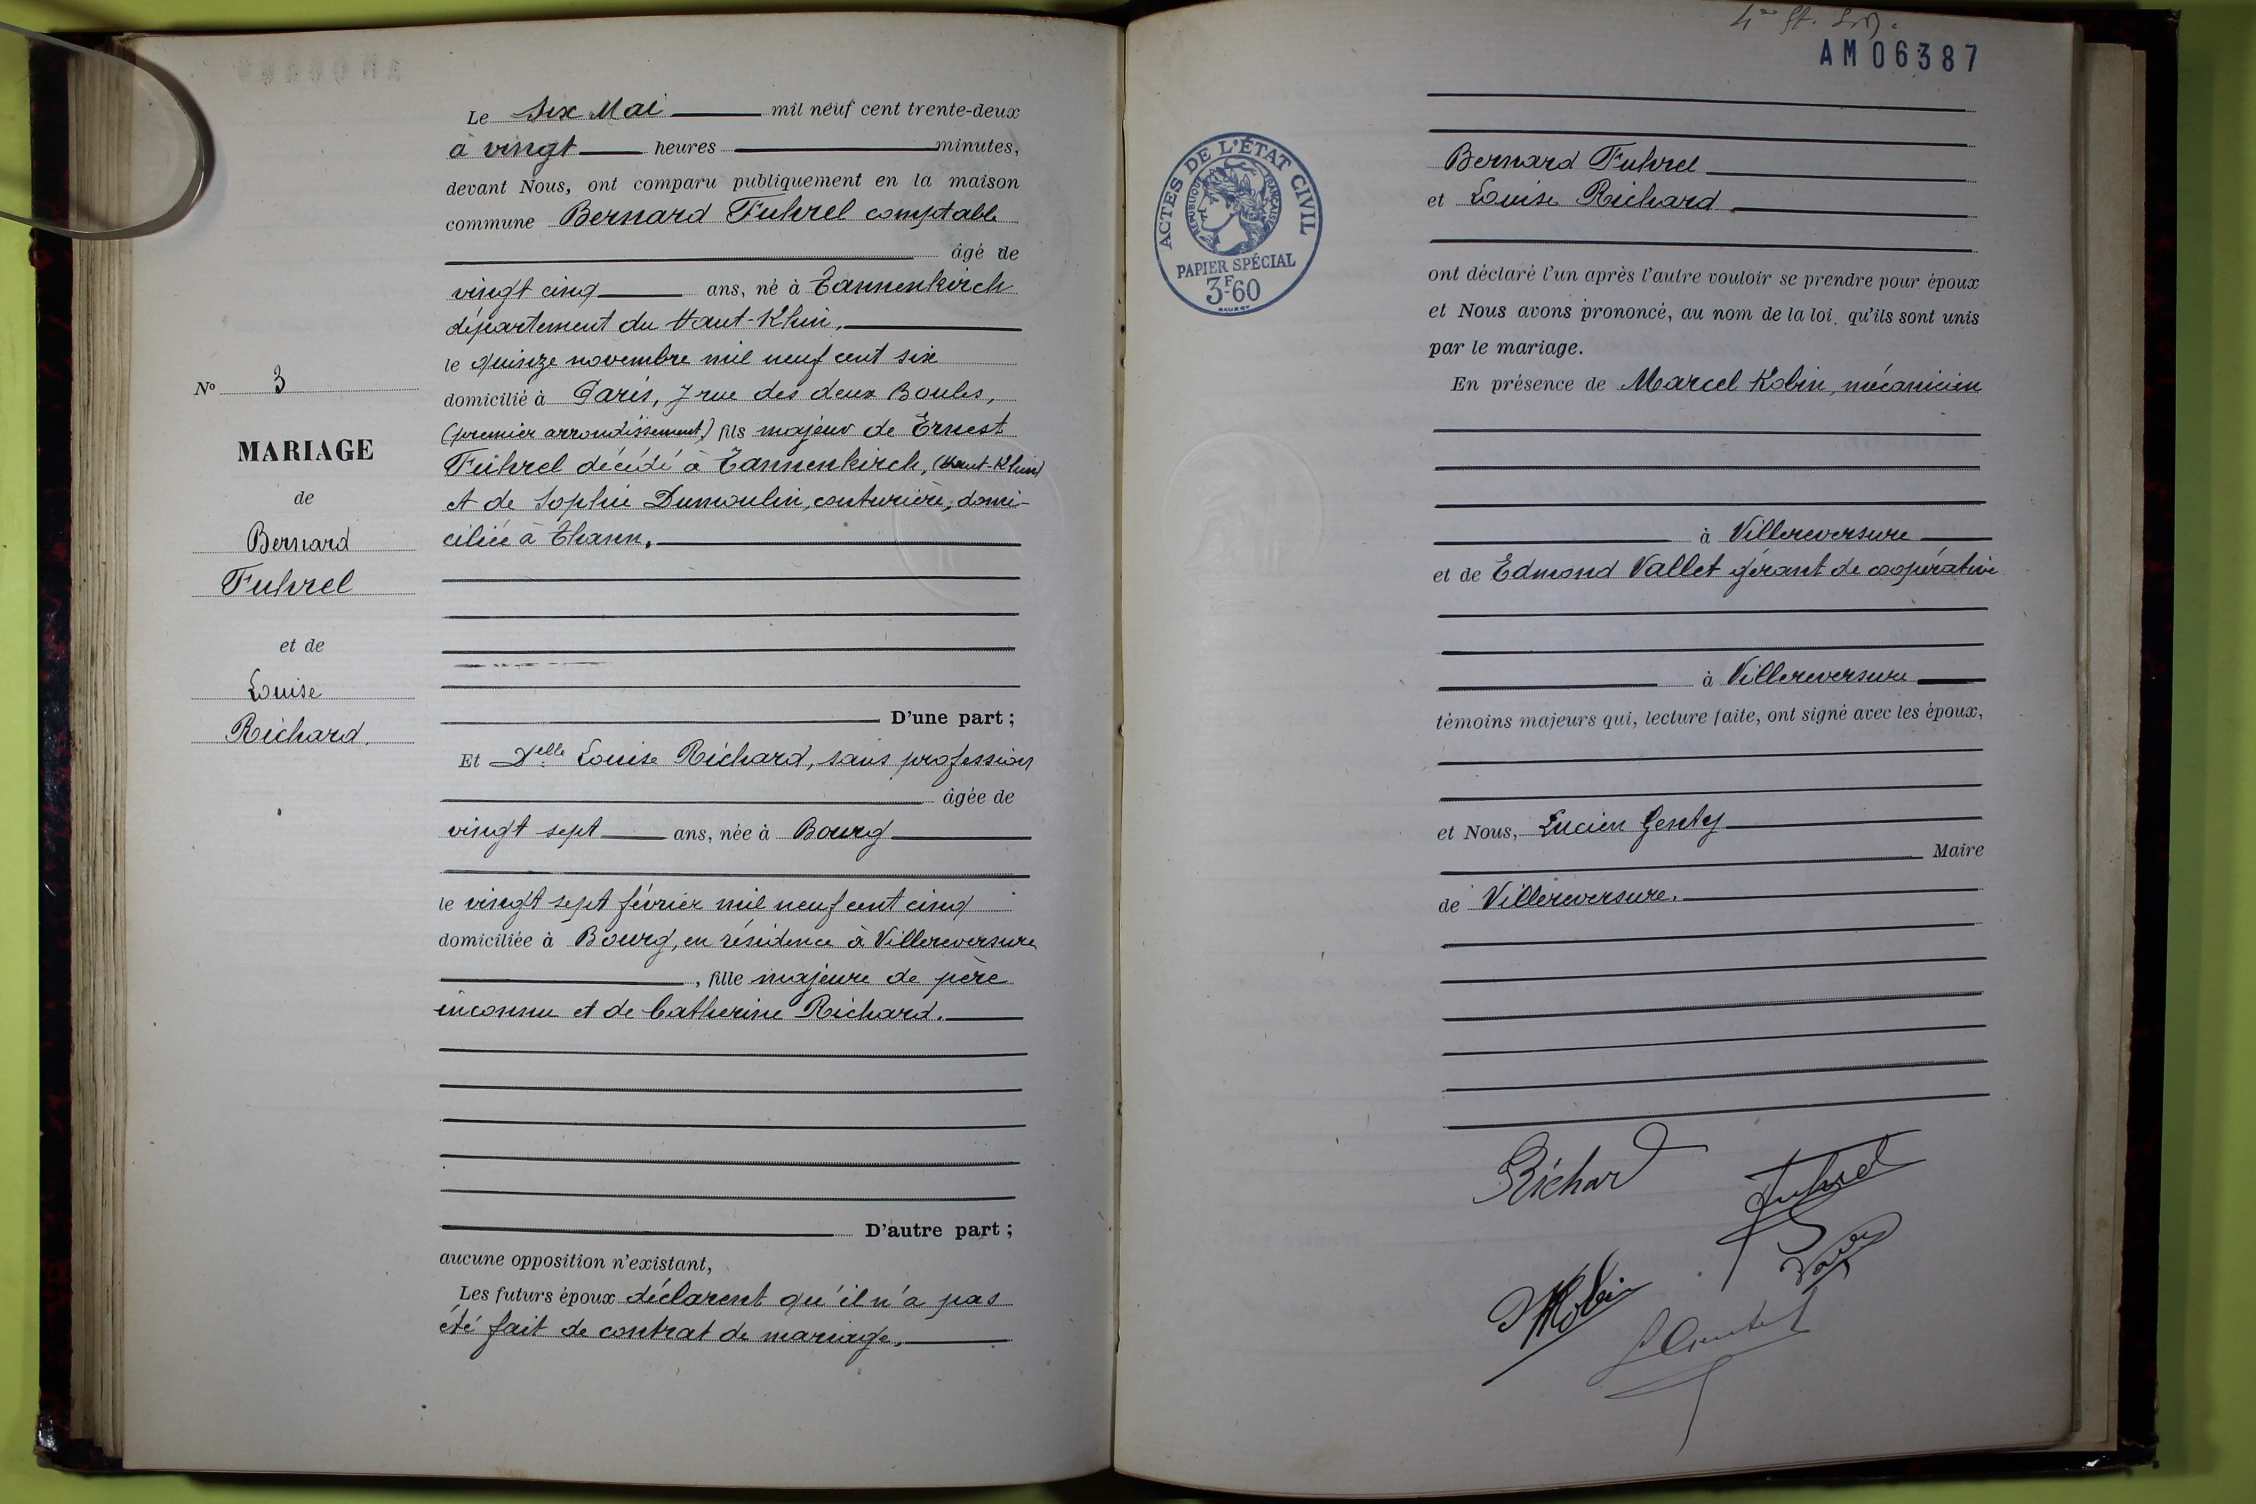 Le six Mai mil neuf cent trente-deux
à vingt heures minutes,
devant Nous, ont comparu publiquement en la maison
commune Bernard Fuhrel comptable
âgé de
vingt cinq ans, né à Tannenkirch
département du Haut-Rhin,
le quinze novembre mil neuf cent six
domicilié à Paris, 7 rue des deux Boules,
(premier arrondissement,) fils majeur de Ernest
Fuhrel décédé à Tannenkirch, (Haut-Rhin)
et de Sophie Dumoulin, couturière, domi-
ciliée à Thann.
N° 3
MARIAGE
de
Bernard
Fuhrel
et de
Louise
Richard.
D'une part ;
Et Delle Louise Richard, sans profession
âgée de
vingt sept ans, née à Bourg
le vingt sept février mil neuf cent cinq
domiciliée à Bourg, en résidence à Villereversure
, fille majeure de père
inconnu et de Catherine Richard.
D'autre part ;
aucune opposition n'existant,
Les futurs époux déclarent qu'il n'a pas
été fait de contrat de mariage.
AM06387
ACTES DE L'ÉTAT CIVIL
RÉPUBLIQUE FRANÇAISE
PAPIER SPÉCIAL
3F-60
Bernard Fuhrel
et Louise Richard
ont déclaré l'un après l'autre vouloir se prendre pour époux
et Nous avons prononcé, au nom de la loi, qu'ils sont unis
par le mariage.
En présence de Marcel Robin, mécanicien
à Villereversure
et de Edmond Vallet gérant de coopérative
à Villereversure
témoins majeurs qui, lecture faite, ont signé avec les époux,
et Nous, Lucien Genty
Maire
de Villereversure.
Richard
Fuhrel
MRobin